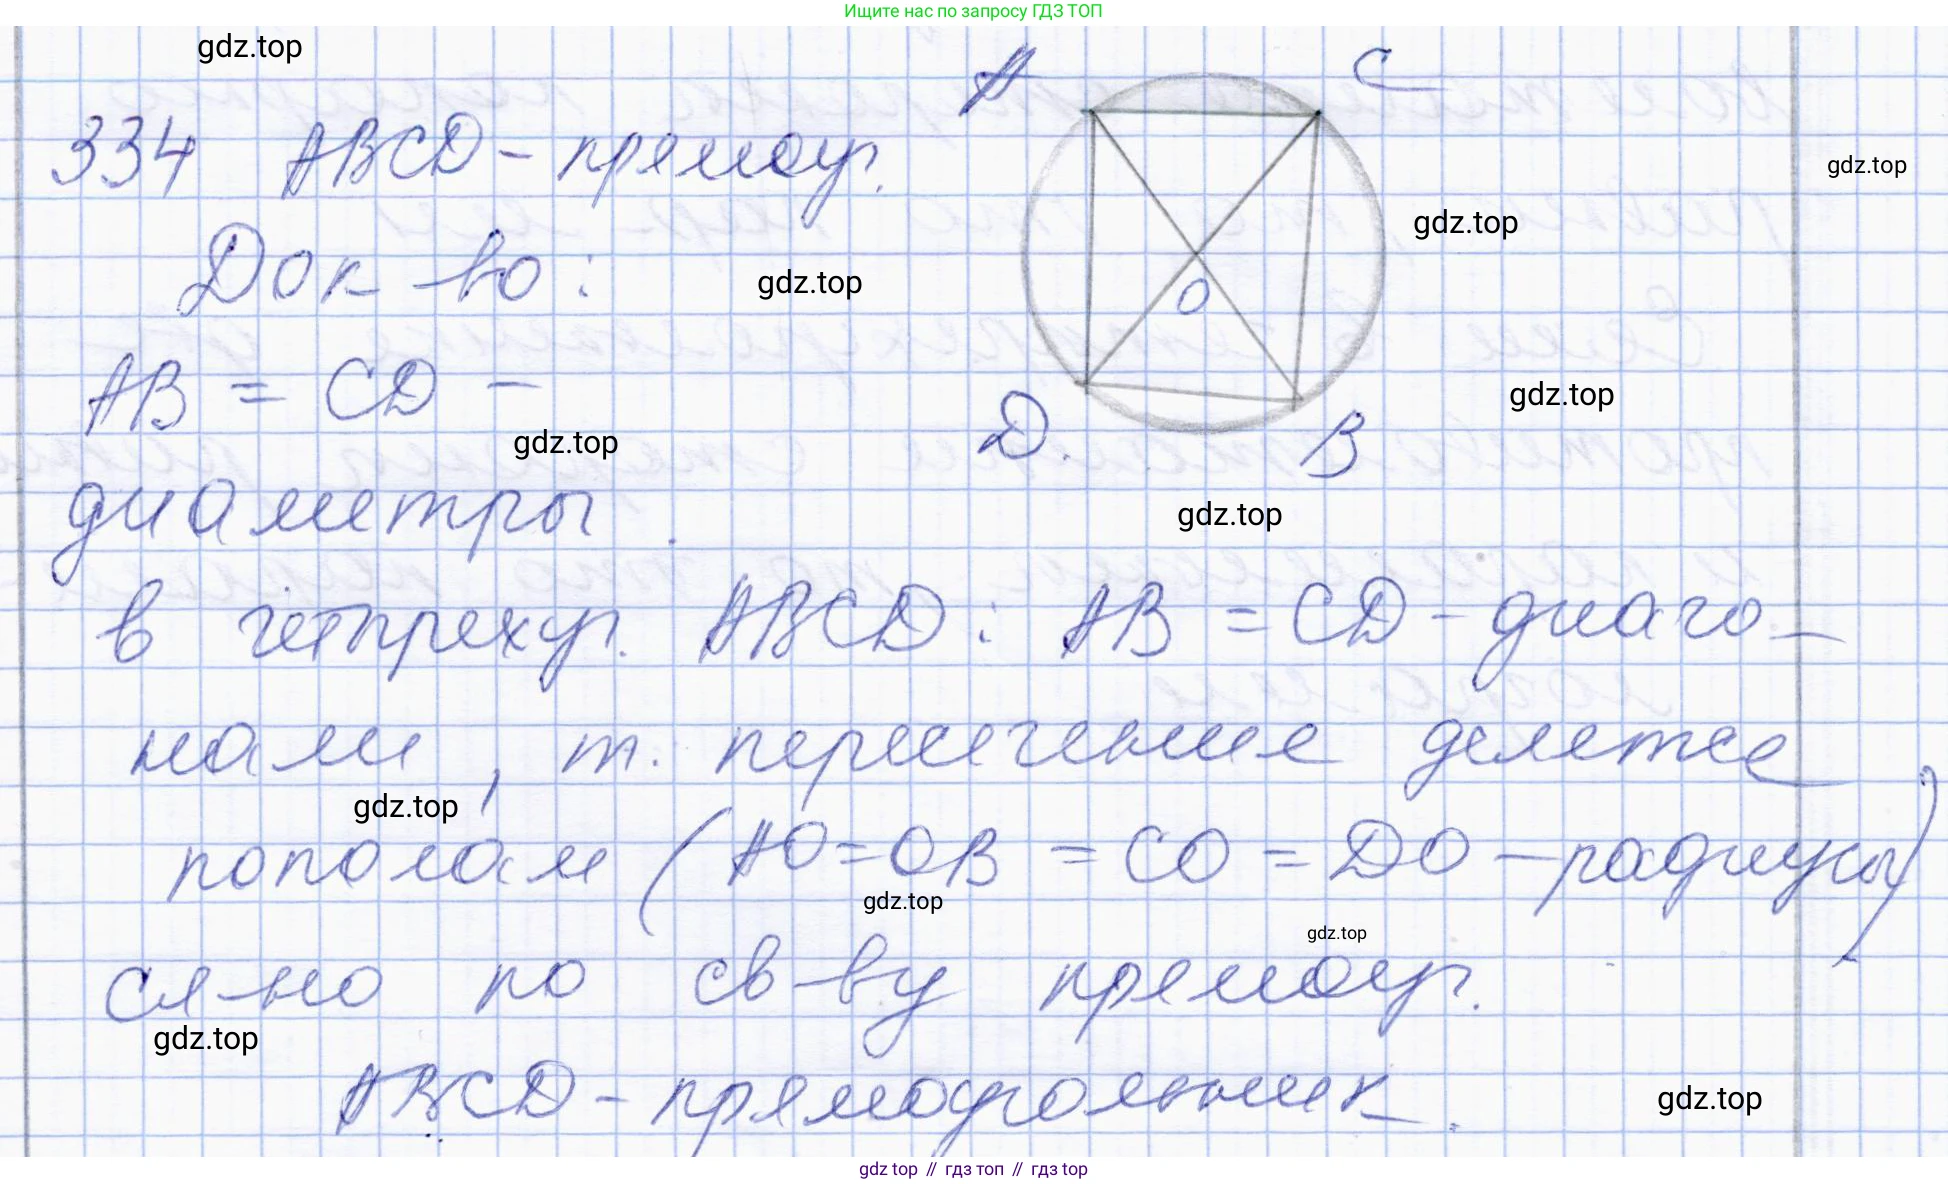 Ищите нас по запросу ГДЗ ТОП
gdz.top
A C
334 ABCD - прямоуг.
gdz.top
gdz.top
Док-во:
gdz.top
O
AB = CD -
gdz.top
D. B
gdz.top
диаметры.
gdz.top
в четырехуг. ABCD: AB = CD - диаго-
нали, т. пересечения делятся
gdz.top
пополам (AO=OB = CO = DO - радиусы)
gdz.top
gdz.top
сл-но по св-ву прямоуг.
gdz.top
ABCD - прямоугольник.
gdz.top
gdz top // гдз топ // гдз top